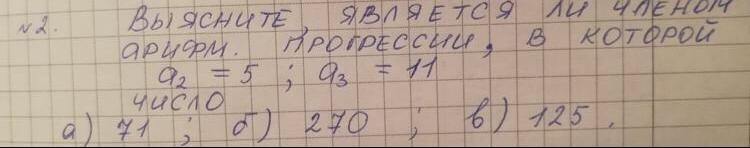 №2. Выясните, является ли членом
арифм. прогрессии, в которой
a₂ = 5 ; a₃ = 11
число
а) 71 ; б) 270 ; в) 125.